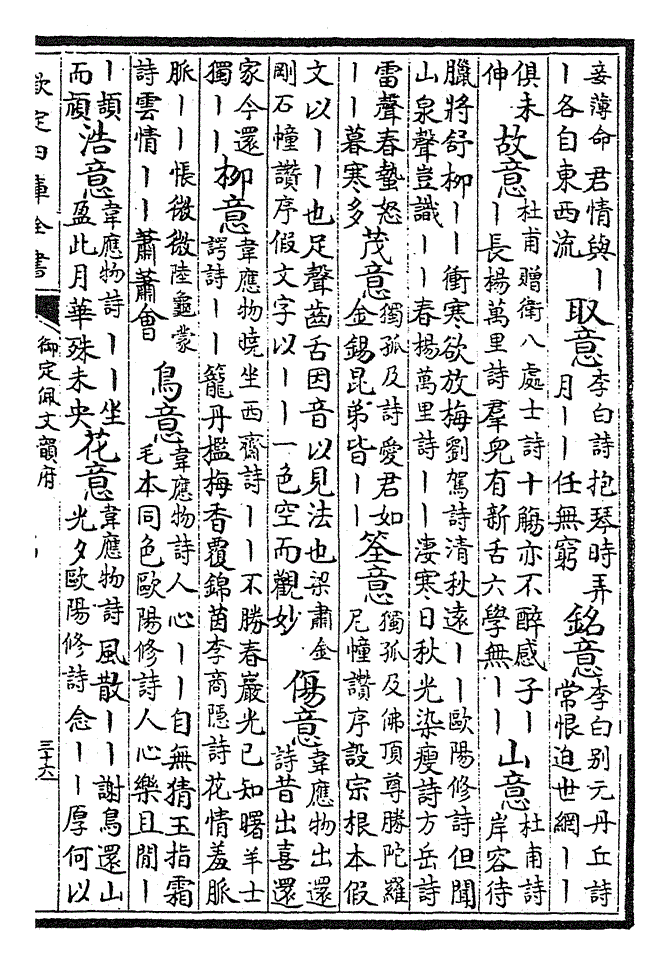 妾薄命 君情與丨丨各自東西流 取意 李白詩抱琴時弄月丨丨任無窮 銘意 李白别元丹丘詩常恨迫世網丨丨
俱未伸 故意 杜甫贈衛八處士詩十觴亦不醉感子丨丨長楊萬里詩羣兒有新舌六學無丨丨 山意 杜甫詩岸容待
臘將舒柳丨丨衝寒欲放梅劉駕詩清秋遠丨丨歐陽修詩但聞山泉聲豈識丨丨春楊萬里詩丨丨淒寒日秋光染瘦詩方岳詩
雷聲春蟄怒丨丨暮寒多 茂意 獨孤及詩愛君如金錫昆弟皆丨丨 筌意 獨孤及佛頂尊勝陀羅尼幢讚序設宗根本假
文以丨丨也足聲齒舌因音以見法也梁肅金剛石幢讚序假文字以丨丨一色空而觀妙 傷意 韋應物出還詩昔出喜還
家今還獨丨丨 柳意 韋應物曉坐西齋詩丨丨不勝春巖光已知曙羊士諤詩丨丨籠丹檻梅香覆錦茵李商隱詩花情羞脈
脈丨丨悵微微陸龜蒙詩雲情丨丨蕭蕭會 鳥意 韋應物詩人心丨丨自無猜玉指霜毛本同色歐陽修詩人心樂且閒丨
丨頡而頏 浩意 韋應物詩丨丨坐盈此月華殊未央 花意 韋應物詩風散丨丨謝鳥還山光夕歐陽修詩念丨丨厚何以
欽定四庫全書
御定佩文韻府
三十六